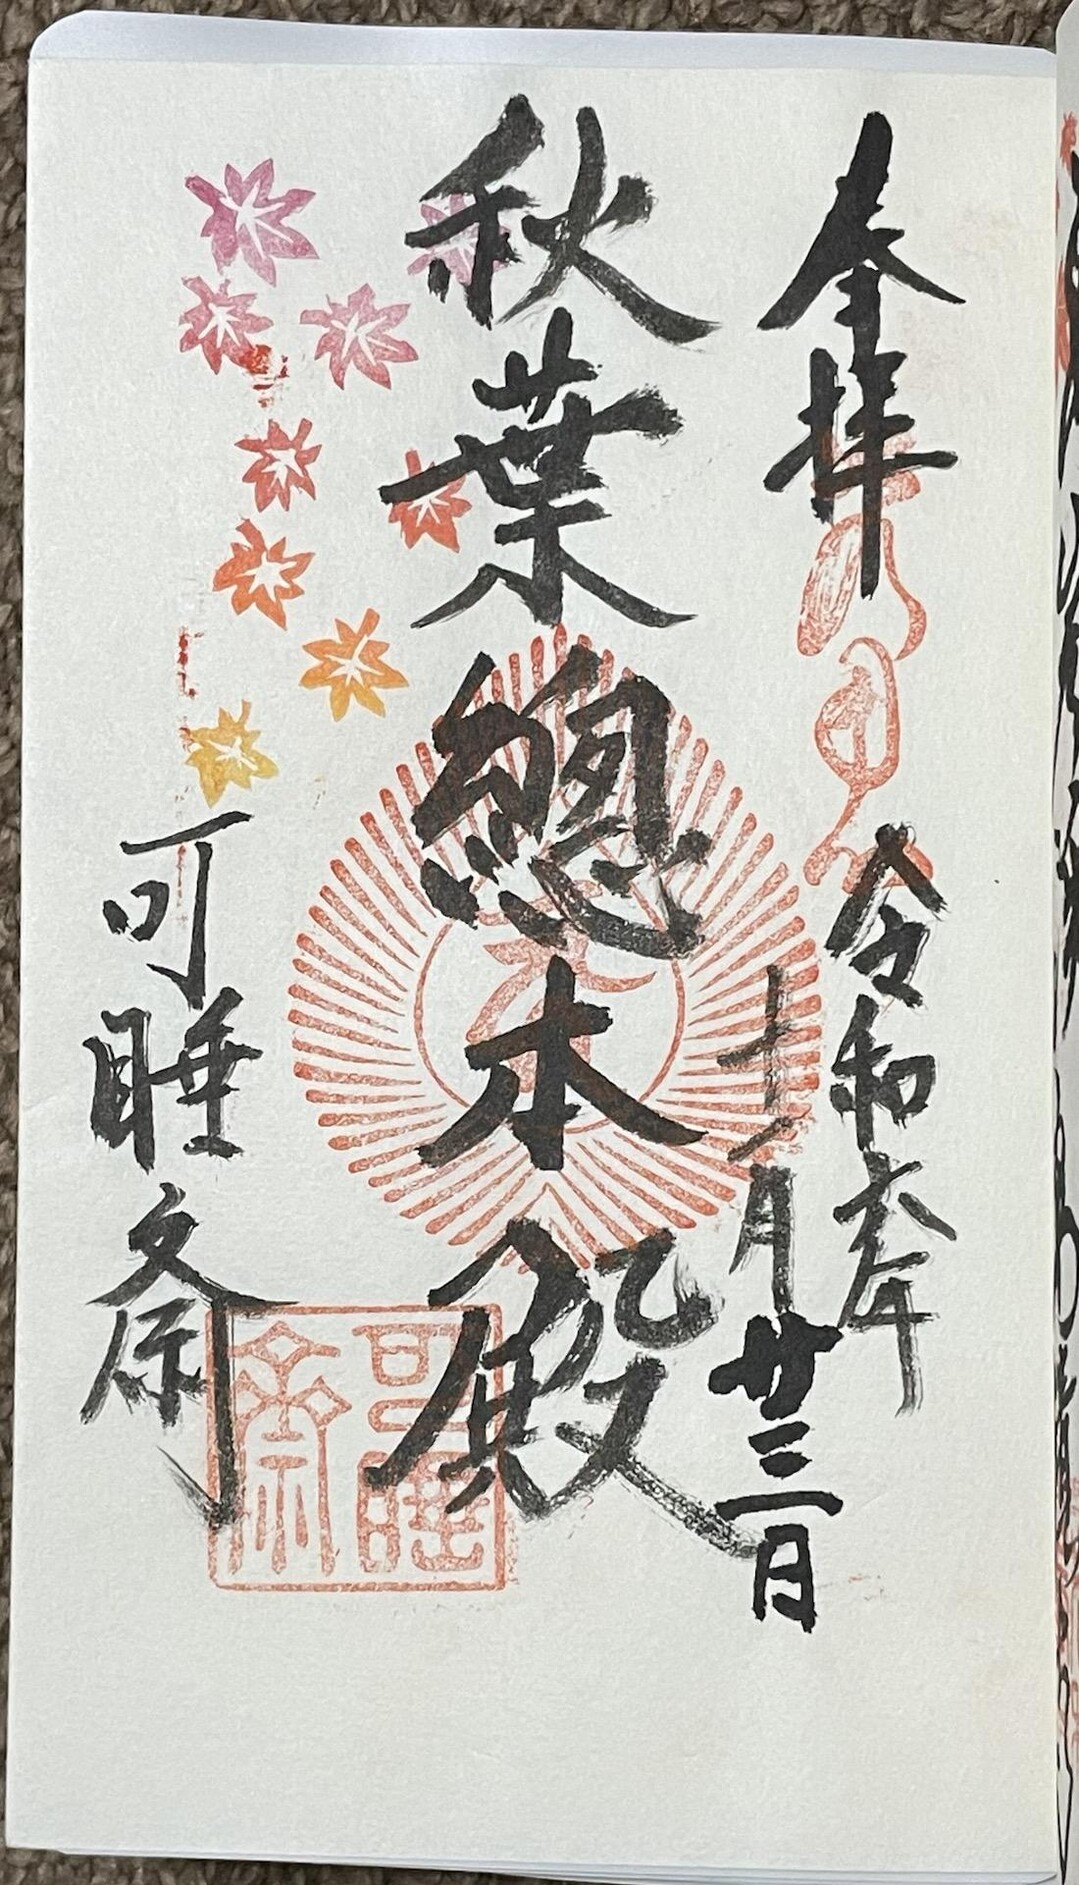 奉拝
令和六年
十一月廿三日
秋葉總本殿
可睡斎
可睡齋